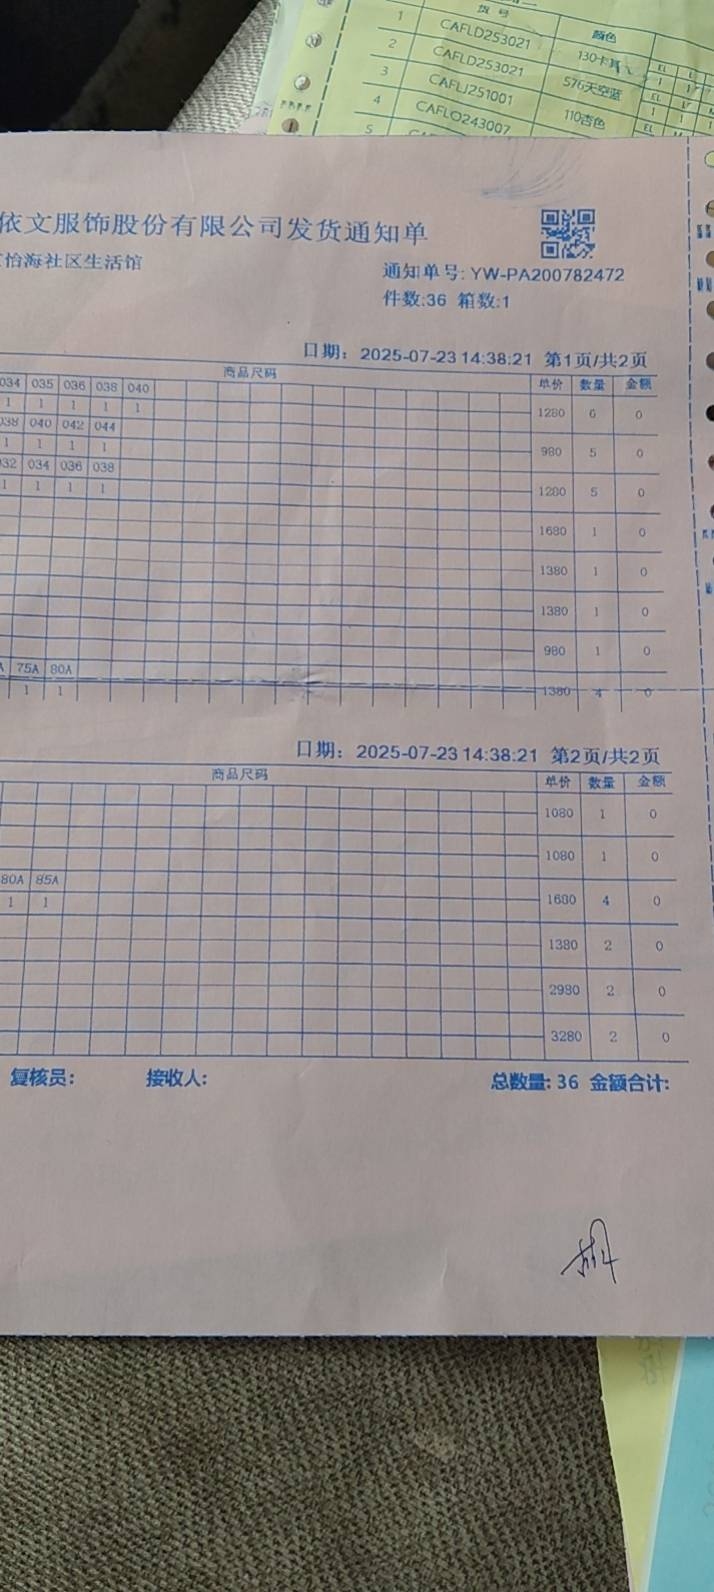 货号 颜色
1 CAFLD253021 130卡其
2 CAFLD253021 576天空蓝
3 CAFLJ251001 110杏色
4 CAFLO243007
5
依文服饰股份有限公司发货通知单
怡海社区生活馆
通知单号: YW-PA200782472
件数:36 箱数:1
日期: 2025-07-23 14:38:21 第1页/共2页
商品尺码 单价 数量 金额
034 035 036 038 040
1 1 1 1 1 1280 6 0
038 040 042 044
1 1 1 1 980 5 0
032 034 036 038
1 1 1 1 1280 5 0
1680 1 0
1380 1 0
1380 1 0
980 1 0
75A 80A
1 1 1380 4 0
日期: 2025-07-23 14:38:21 第2页/共2页
商品尺码 单价 数量 金额
1080 1 0
1080 1 0
80A 85A
1 1 1680 4 0
1380 2 0
2980 2 0
3280 2 0
复核员: 接收人: 总数量: 36 金额合计: